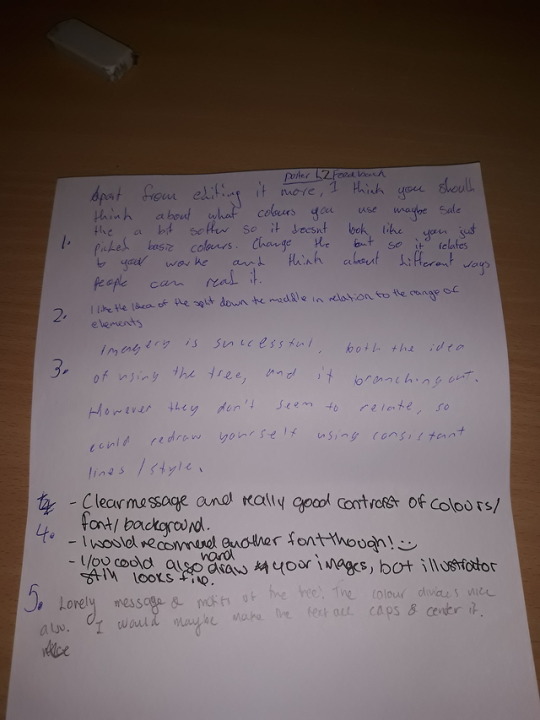 poster L2 Feedback
Apart from editing it more, I think you should
think about what colours you use maybe
the a bit softer so it doesnt look like you just
1. picked basic colours. Change the so it relates
to your worke and think about different ways
people can read it.
2. I like the Idea of the split down the middle in relation to the range of
elements
Imagery is successful, both the idea
3. of using the tree, and it branching out.
However they don't seem to relate, so
could redraw yourself using consistant
lines / style.
- Clear message and really good contrast of colours/
4. font/background.
- I would recommend another font though! :)
- You could also hand draw your images, but illustrator
still looks fine.
5. Lovely message & motifs of the tree. The colour divides nice
also. I would maybe make the text all caps & center it.